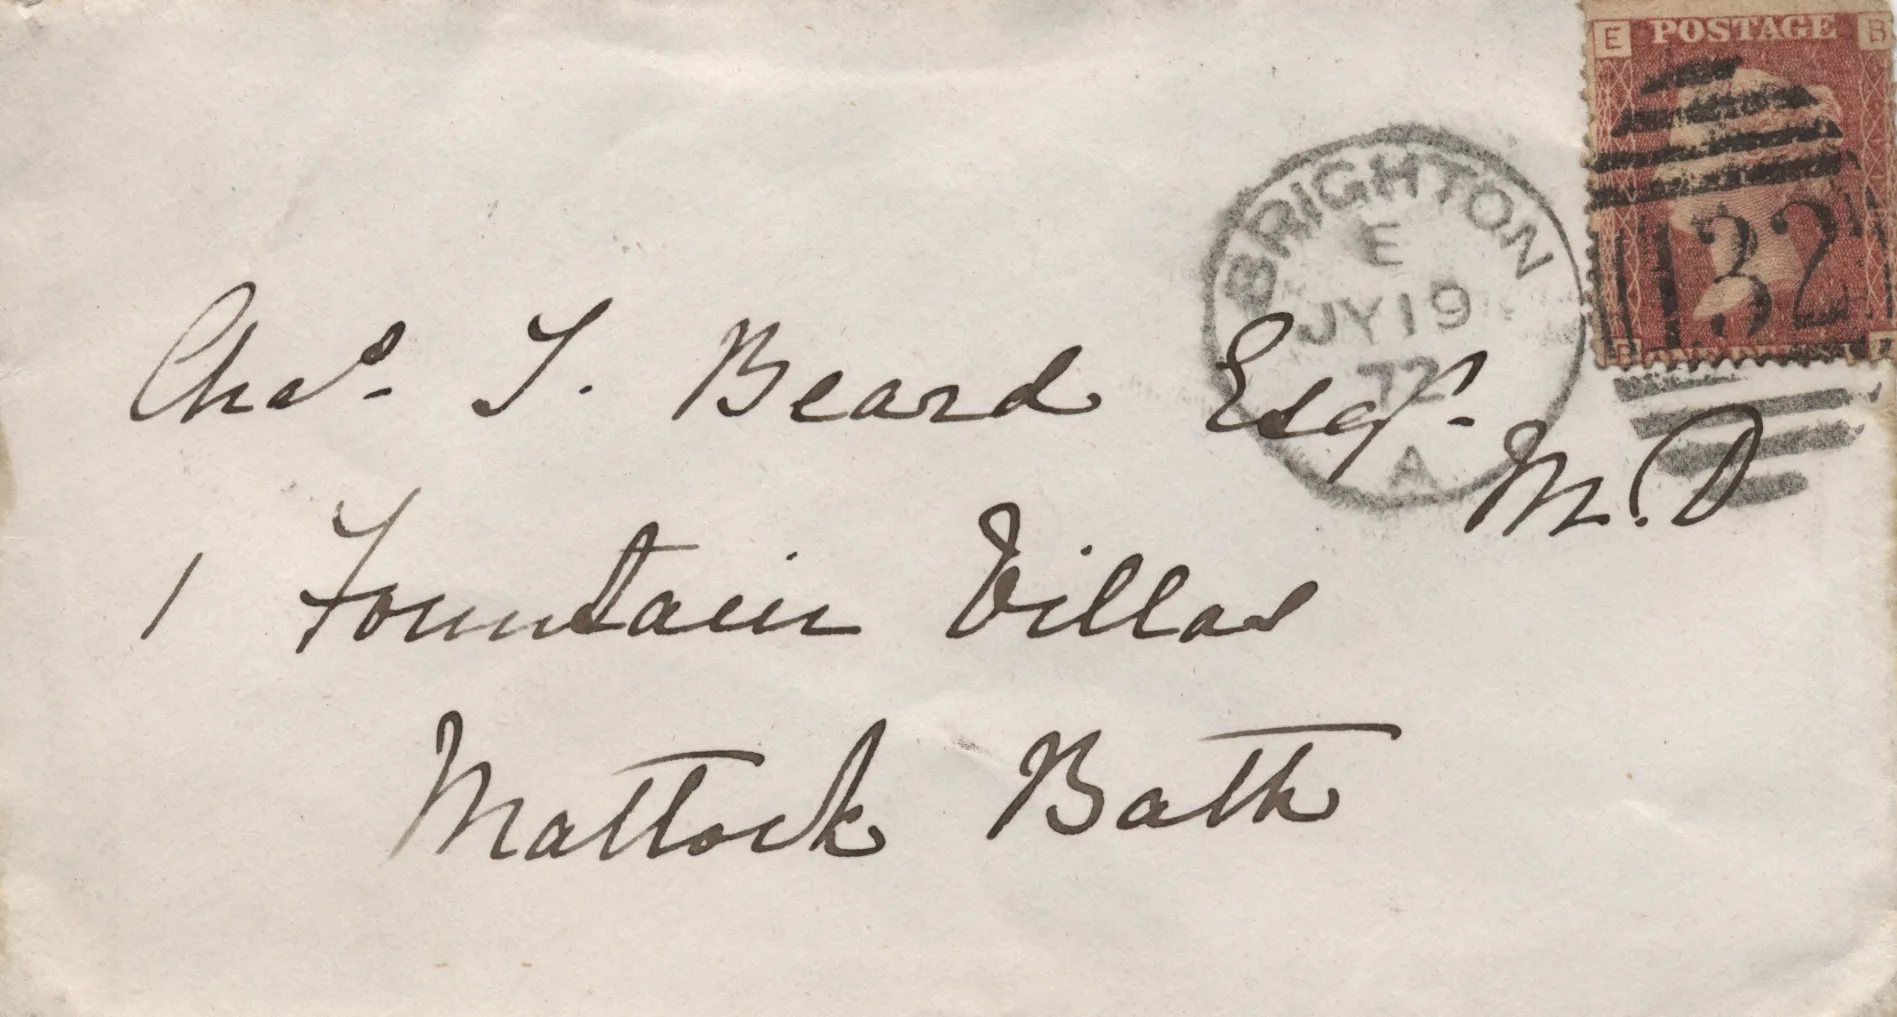 E POSTAGE B
132
BRIGHTON
E
JY 19
72
A
Chas. T. Beard Esqr. M.D
1 Fountain Villas
Matlock Bath